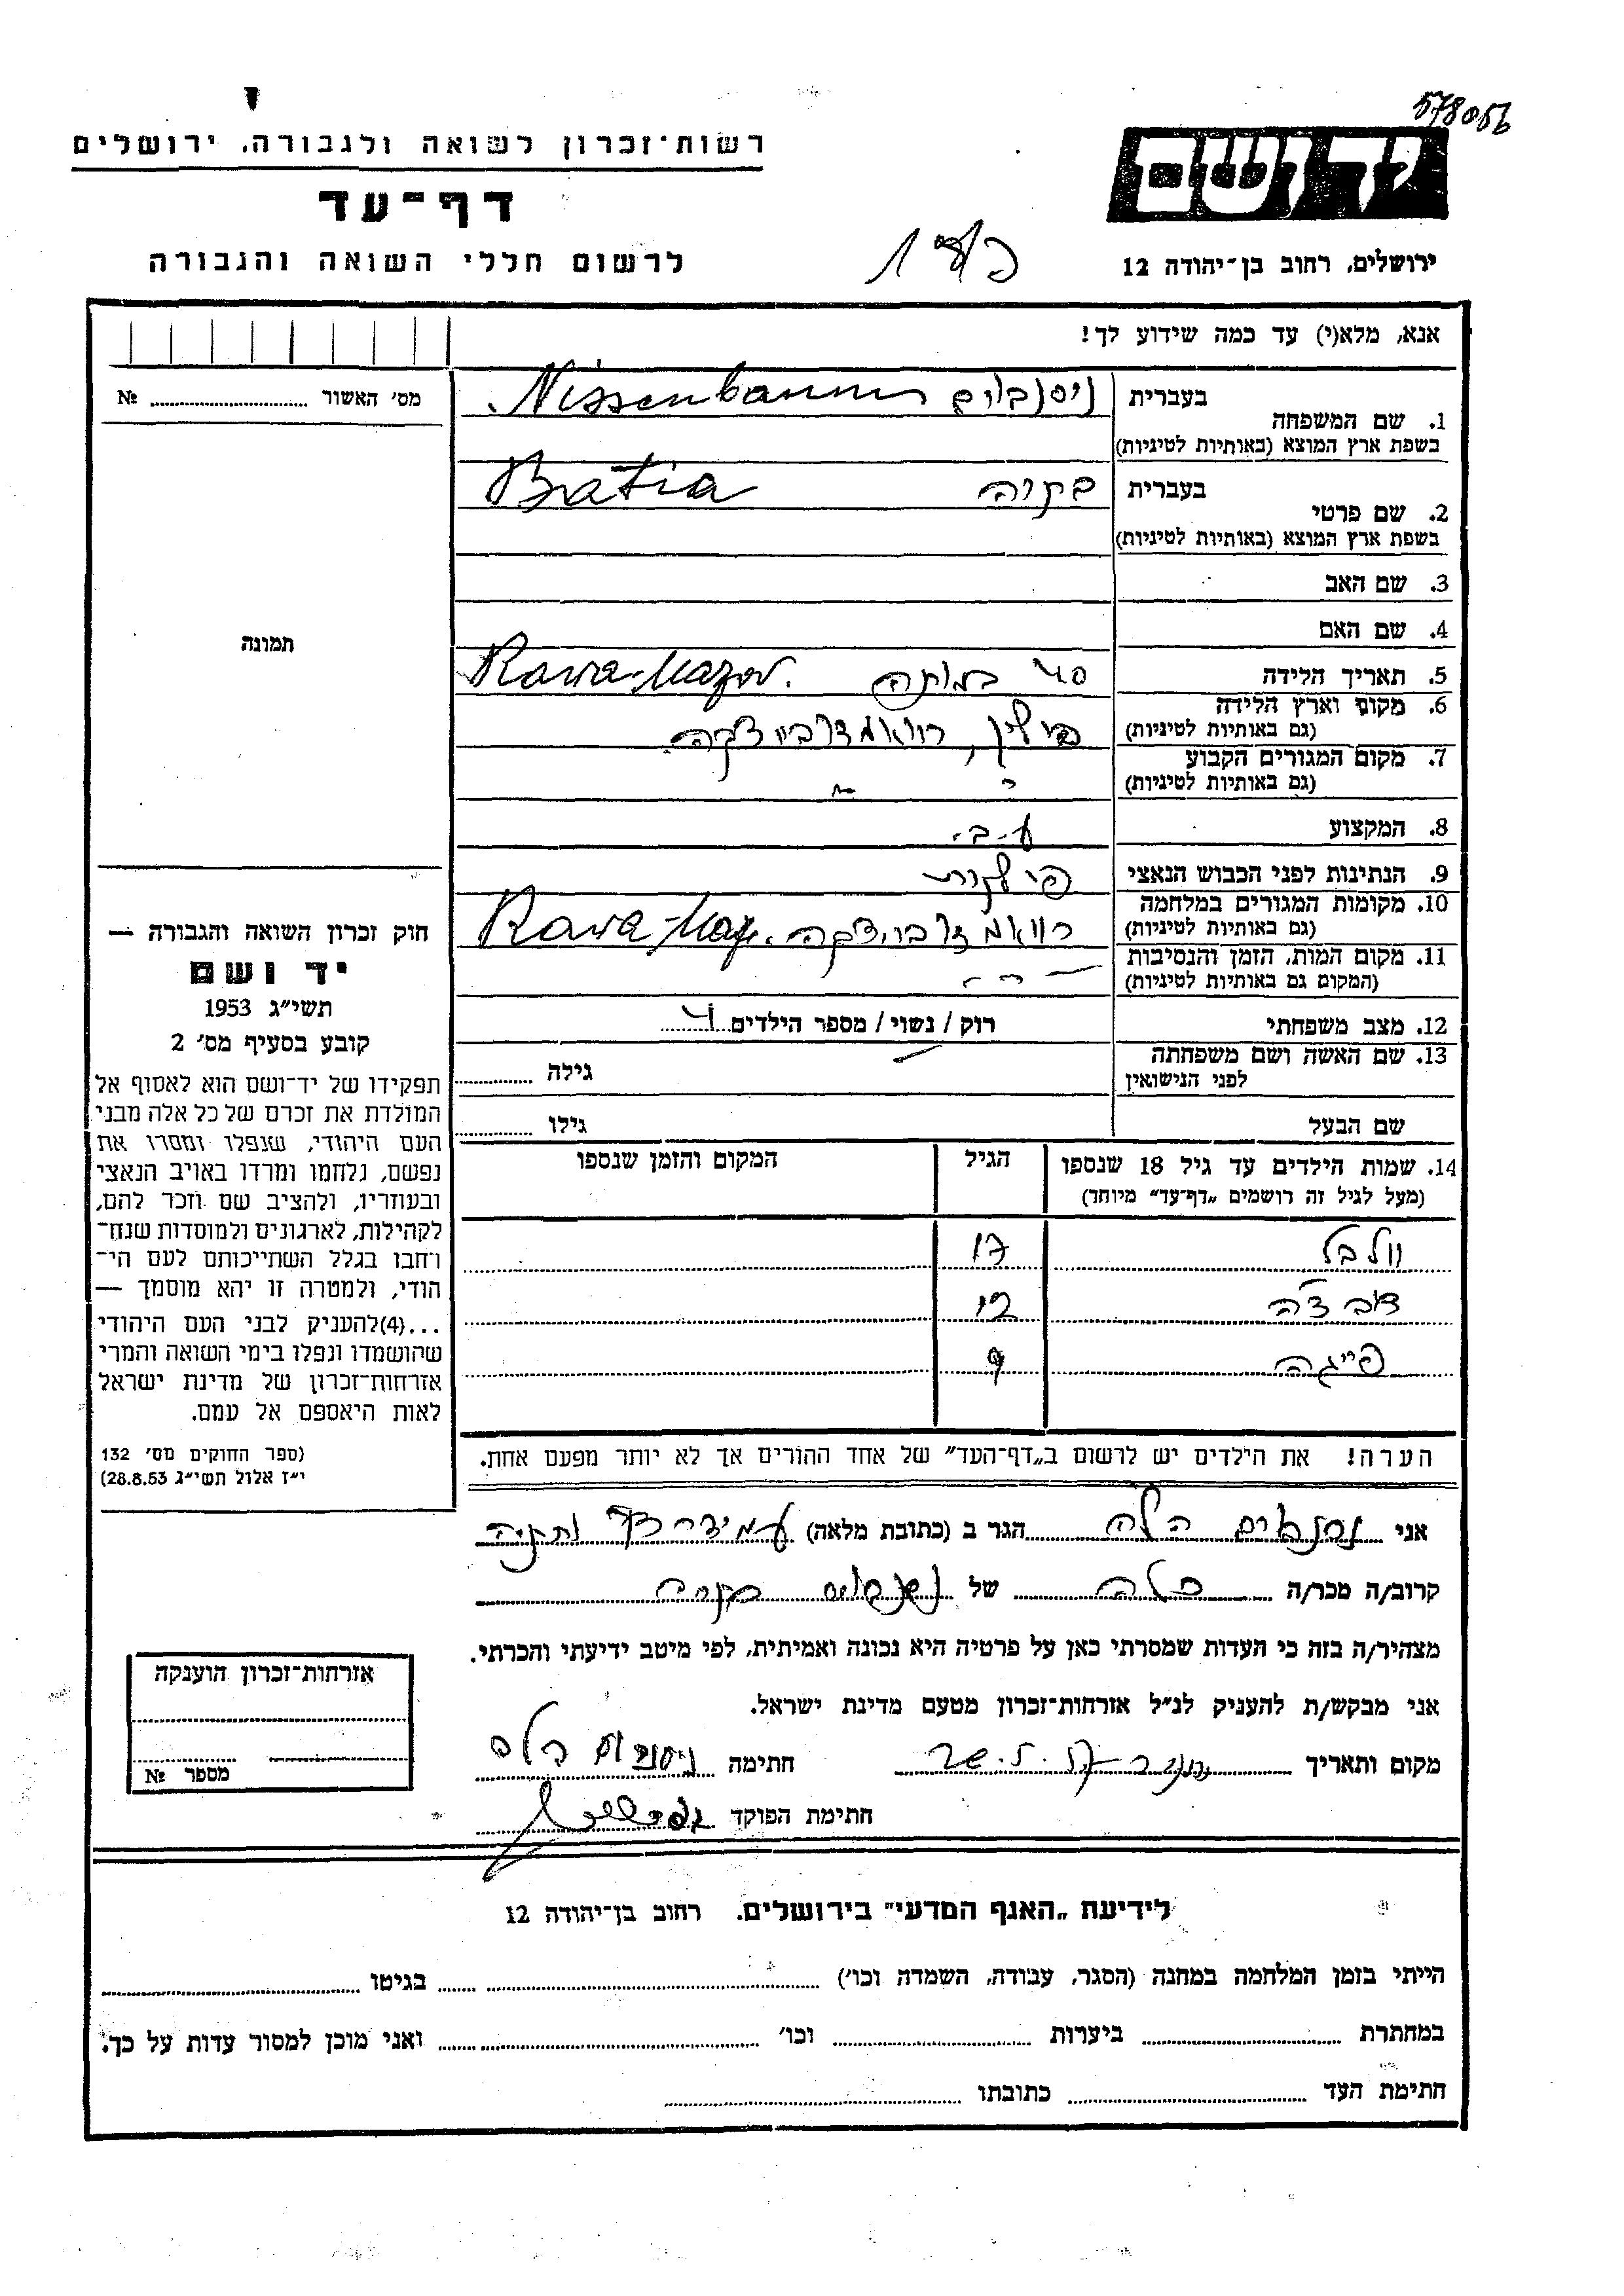 578056
רשות־זכרון לשואה ולגבורה, ירושלים
דף־עד
לרשום חללי השואה והגבורה
ידושם
ירושלים, רחוב בן־יהודה 12
אנא, מלא(י) עד כמה שידוע לך!
מס׳ האשור № 
1. שם המשפחה בעברית ניסנבוים Nissenbaum
בשפת ארץ המוצא (באותיות לטיניות)
2. שם פרטי בעברית בתיה Batia
בשפת ארץ המוצא (באותיות לטיניות)
3. שם האב
4. שם האם
5. תאריך הלידה במותה Rawa-Mazov.
6. מקום וארץ הלידה פולין,
(גם באותיות לטיניות)
7. מקום המגורים הקבוע
(גם באותיות לטיניות)
8. המקצוע ע.ב.
9. הנתינות לפני הכבוש הנאצי פולנית
10. מקומות המגורים במלחמה Rawa-Maz.
(גם באותיות לטיניות)
11. מקום המות, הזמן והנסיבות
(המקום גם באותיות לטיניות)
12. מצב משפחתי רוק / נשוי / מספר הילדים
13. שם האשה ושם משפחתה גילה
לפני הנישואין
שם הבעל גילו
14. שמות הילדים עד גיל 18 שנספו הגיל המקום והזמן שנספו
(מעל לגיל זה רושמים „דף־עד״ מיוחד)
וולבל 17
12
פייגה 9
הערה! את הילדים יש לרשום ב„דף־העד״ של אחד ההורים אך לא יותר מפעם אחת.
תמונה
חוק זכרון השואה והגבורה —
יד ושם
תשי״ג 1953
קובע בסעיף מס׳ 2
תפקידו של יד־ושם הוא לאסוף אל
המולדת את זכרם של כל אלה מבני
העם היהודי, שנפלו ומסרו את
נפשם, נלחמו ומרדו באויב הנאצי
ובעוזריו, ולהציב שם וזכר להם,
לקהילות, לארגונים ולמוסדות שנח־
רחבו בגלל השתייכותם לעם הי־
הודי, ולמטרה זו יהא מוסמך —
...(4)להעניק לבני העם היהודי
שהושמדו ונפלו בימי השואה והמרי
אזרחות־זכרון של מדינת ישראל
לאות היאספם אל עמם.
(ספר החוקים מס׳ 132
י״ז אלול תשי״ג 28.8.53)
אני הלה הגר ב (כתובת מלאה) עמידר נתניה
קרוב/ה מכר/ה כלה של בתיה
מצהיר/ה בזה כי העדות שמסרתי כאן על פרטיה היא נכונה ואמיתית, לפי מיטב ידיעתי והכרתי.
אני מבקש/ת להעניק לנ״ל אזרחות־זכרון מטעם מדינת ישראל.
מקום ותאריך חתימה ניסנבוים הלה
חתימת הפוקד
אזרחות־זכרון הוענקה
מספר №
לידיעת „האגף המדעי״ בירושלים. רחוב בן־יהודה 12
הייתי בזמן המלחמה במחנה (הסגר, עבודה, השמדה וכו׳) בגיטו
במחתרת ביערות וכו׳ ואני מוכן למסור עדות על כך.
חתימת העד כתובתו